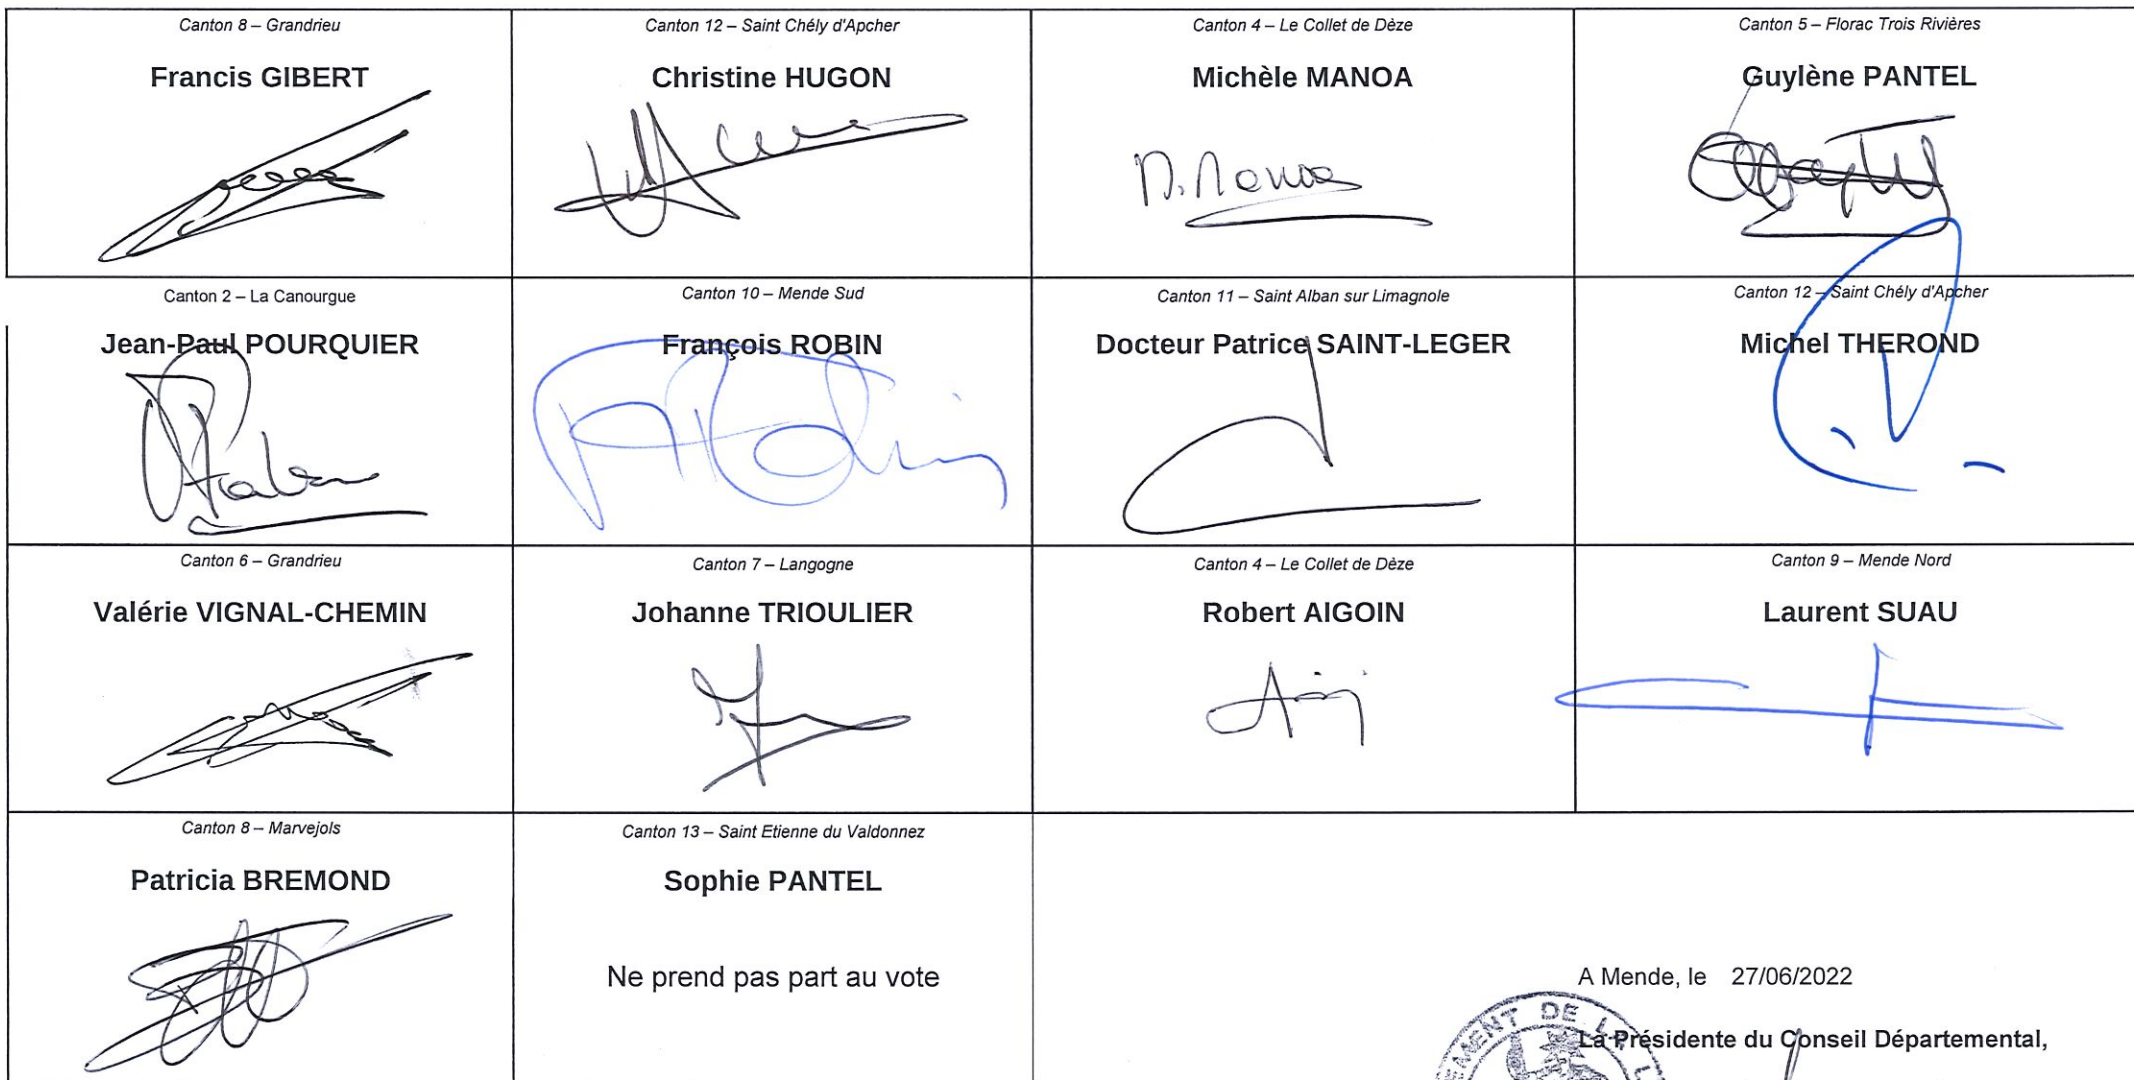 Canton 8 – Grandrieu
Francis GIBERT
Canton 12 – Saint Chély d'Apcher
Christine HUGON
Canton 4 – Le Collet de Dèze
Michèle MANOA
M. Manoa
Canton 5 – Florac Trois Rivières
Guylène PANTEL
Canton 2 – La Canourgue
Jean-Paul POURQUIER
Canton 10 – Mende Sud
François ROBIN
Canton 11 – Saint Alban sur Limagnole
Docteur Patrice SAINT-LEGER
Canton 12 – Saint Chély d'Apcher
Michel THEROND
Canton 6 – Grandrieu
Valérie VIGNAL-CHEMIN
Canton 7 – Langogne
Johanne TRIOULIER
Canton 4 – Le Collet de Dèze
Robert AIGOIN
Canton 9 – Mende Nord
Laurent SUAU
Canton 8 – Marvejols
Patricia BREMOND
Canton 13 – Saint Etienne du Valdonnez
Sophie PANTEL
Ne prend pas part au vote
A Mende, le 27/06/2022
La Présidente du Conseil Départemental,